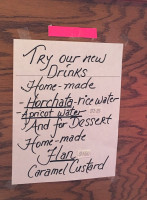 Try our new
Drinks
Home-made
-Horchata-rice water
-Apricot water
And for Dessert
Home-made
Flan
Caramel Custard